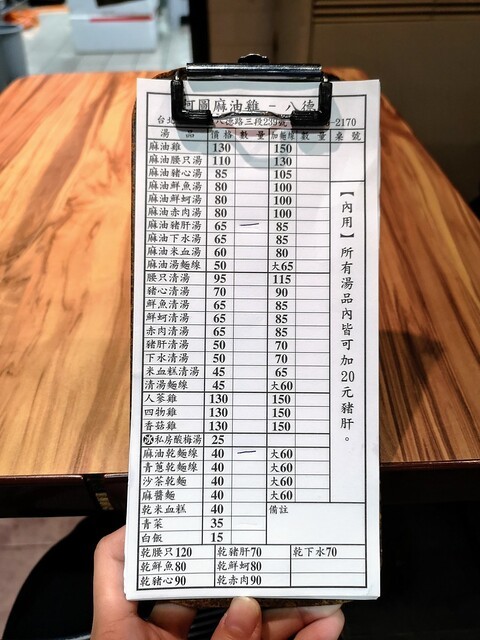 阿圖麻油雞 - 八德
台北 八德路三段23 號 -2170
湯 品 價格 數量 加麵線 數量 桌號
麻油雞 130 150
麻油腰只湯 110 130
麻油豬心湯 85 105
麻油鮮魚湯 80 100
麻油鮮蚵湯 80 100
麻油赤肉湯 80 100
麻油豬肝湯 65 一 85
麻油下水湯 65 85
麻油米血湯 60 80
麻油湯麵線 50 大65
腰只清湯 95 115
豬心清湯 70 90
鮮魚清湯 65 85
鮮蚵清湯 65 85
赤肉清湯 65 85
豬肝清湯 50 70
下水清湯 50 70
米血糕清湯 45 65
清湯麵線 45 大60
人蔘雞 130 150
四物雞 130 150
香菇雞 130 150
冰私房酸梅湯 25
麻油乾麵線 40 一 大60
青蔥乾麵線 40 大60
沙茶乾麵 40 大60
麻醬麵 40 大60
乾米血糕 40 備註
青菜 35
白飯 15
乾腰只120 乾豬肝70 乾下水70
乾鮮魚80 乾鮮蚵80
乾豬心90 乾赤肉90
【內用】所有湯品內皆可加20元豬肝。